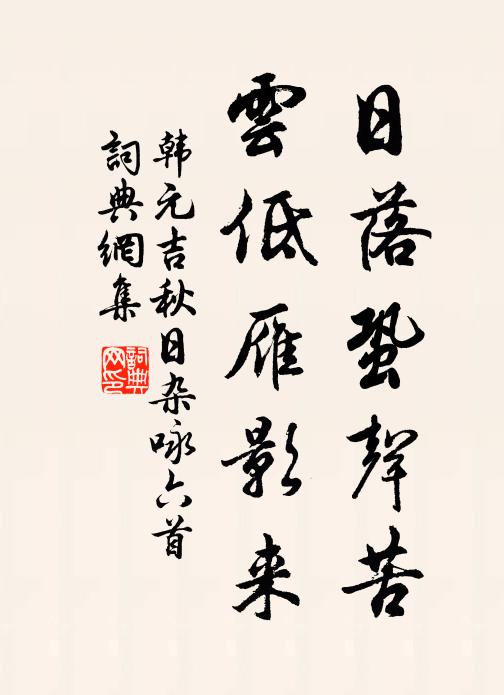 日落蛩聲苦
雲低雁影来
韩元吉秋日杂咏六首
詞典網集
詞典网印